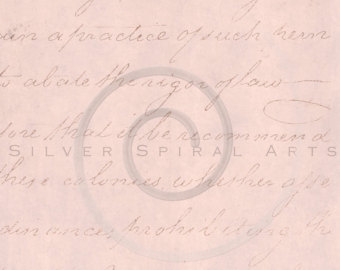 in a practice of such
to abate the rigor of law
fore that it be recommend
SILVER SPIRAL ARTS
these colonies whether
dinances, prohibiting th